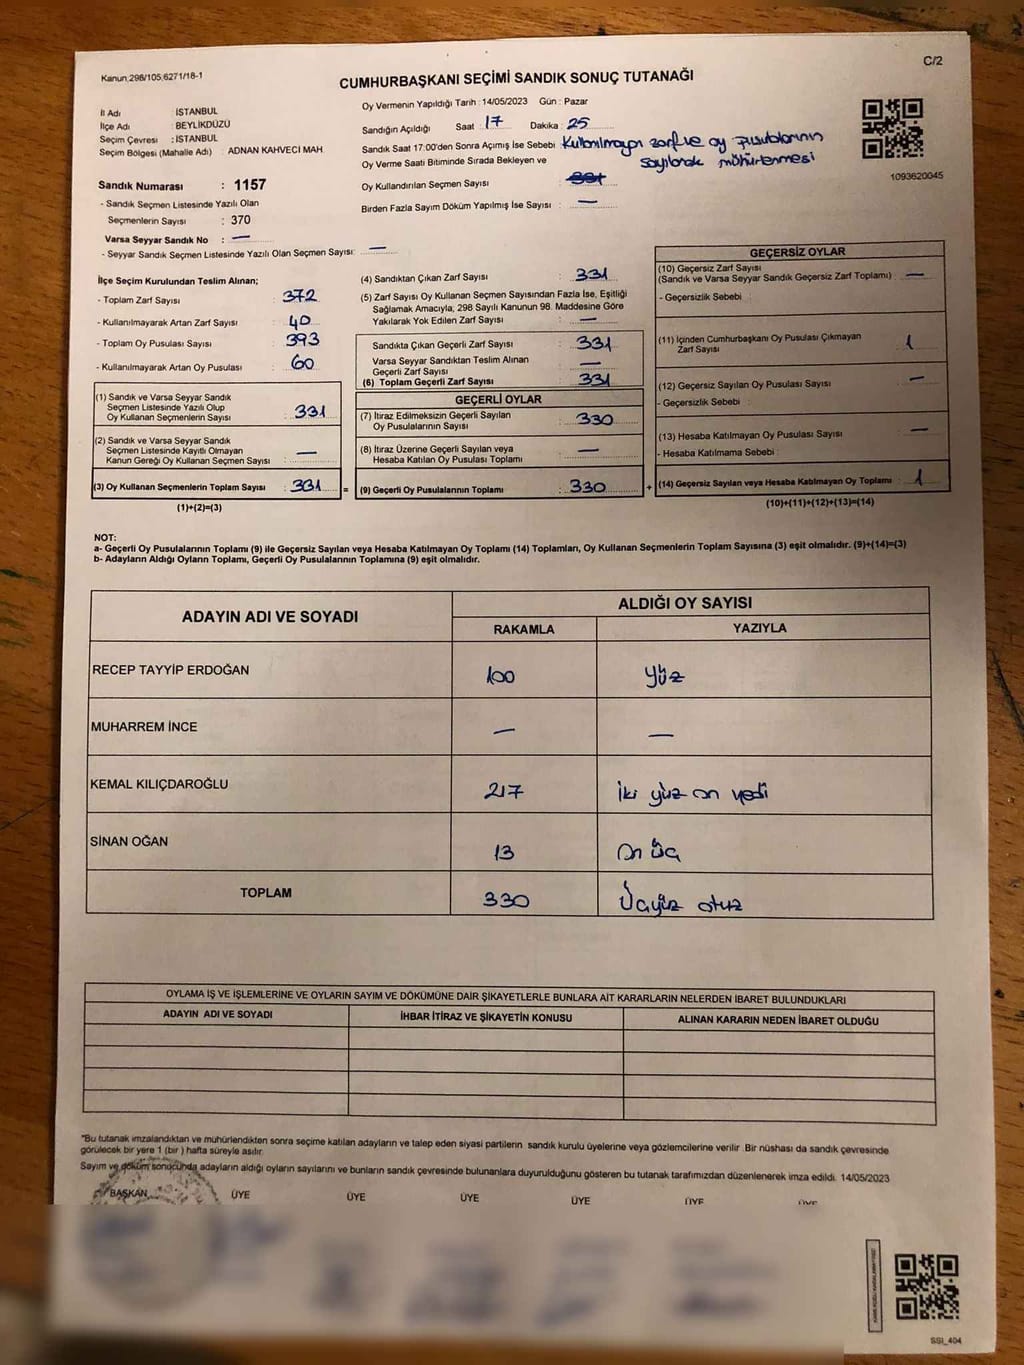 Kanun,298/105,6271/18-1
C/2
CUMHURBAŞKANI SEÇİMİ SANDIK SONUÇ TUTANAĞI
İl Adı : İSTANBUL
İlçe Adı : BEYLİKDÜZÜ
Seçim Çevresi : İSTANBUL
Seçim Bölgesi (Mahalle Adı) : ADNAN KAHVECİ MAH.
Sandık Numarası : 1157
- Sandık Seçmen Listesinde Yazılı Olan
Seçmenlerin Sayısı : 370
Varsa Seyyar Sandık No : —
- Seyyar Sandık Seçmen Listesinde Yazılı Olan Seçmen Sayısı: —
Oy Vermenin Yapıldığı Tarih : 14/05/2023 Gün : Pazar
Sandığın Açıldığı Saat : 17 Dakika : 25
Sandık Saat 17:00'den Sonra Açımış İse Sebebi Kullanılmayan zarf ve oy pusulalarının
Oy Verme Saati Bitiminde Sırada Bekleyen ve sayılarak mühürlenmesi
Oy Kullandırılan Seçmen Sayısı :
Birden Fazla Sayım Döküm Yapılmış İse Sayısı : —
1093620045
İlçe Seçim Kurulundan Teslim Alınan;
- Toplam Zarf Sayısı : 372
- Kullanılmayarak Artan Zarf Sayısı : 40
- Toplam Oy Pusulası Sayısı : 393
- Kullanılmayarak Artan Oy Pusulası : 60
(1) Sandık ve Varsa Seyyar Sandık
Seçmen Listesinde Yazılı Olup
Oy Kullanan Seçmenlerin Sayısı : 331
(2) Sandık ve Varsa Seyyar Sandık
Seçmen Listesinde Kayıtlı Olmayan
Kanun Gereği Oy Kullanan Seçmen Sayısı : —
(3) Oy Kullanan Seçmenlerin Toplam Sayısı : 331 =
(1)+(2)=(3)
(4) Sandıktan Çıkan Zarf Sayısı : 331
(5) Zarf Sayısı Oy Kullanan Seçmen Sayısından Fazla İse, Eşitliği
Sağlamak Amacıyla, 298 Sayılı Kanunun 98. Maddesine Göre
Yakılarak Yok Edilen Zarf Sayısı : —
Sandıkta Çıkan Geçerli Zarf Sayısı : 331
Varsa Seyyar Sandıktan Teslim Alınan
Geçerli Zarf Sayısı : —
(6) Toplam Geçerli Zarf Sayısı : 331
GEÇERLİ OYLAR
(7) İtiraz Edilmeksizin Geçerli Sayılan
Oy Pusulalarının Sayısı : 330
(8) İtiraz Üzerine Geçerli Sayılan veya
Hesaba Katılan Oy Pusulası Toplamı : —
(9) Geçerli Oy Pusulalarının Toplamı : 330 +
GEÇERSİZ OYLAR
(10) Geçersiz Zarf Sayısı
(Sandık ve Varsa Seyyar Sandık Geçersiz Zarf Toplamı) : —
- Geçersizlik Sebebi :
(11) İçinden Cumhurbaşkanı Oy Pusulası Çıkmayan
Zarf Sayısı : 1
(12) Geçersiz Sayılan Oy Pusulası Sayısı : —
- Geçersizlik Sebebi :
(13) Hesaba Katılmayan Oy Pusulası Sayısı : —
- Hesaba Katılmama Sebebi :
(14) Geçersiz Sayılan veya Hesaba Katılmayan Oy Toplamı : 1
(10)+(11)+(12)+(13)=(14)
NOT:
a- Geçerli Oy Pusulalarının Toplamı (9) ile Geçersiz Sayılan veya Hesaba Katılmayan Oy Toplamı (14) Toplamları, Oy Kullanan Seçmenlerin Toplam Sayısına (3) eşit olmalıdır. (9)+(14)=(3)
b- Adayların Aldığı Oyların Toplamı, Geçerli Oy Pusulalarının Toplamına (9) eşit olmalıdır.
ADAYIN ADI VE SOYADI
ALDIĞI OY SAYISI
RAKAMLA YAZIYLA
RECEP TAYYİP ERDOĞAN 100 Yüz
MUHARREM İNCE — —
KEMAL KILIÇDAROĞLU 217 iki yüz on yedi
SİNAN OĞAN 13 On üç
TOPLAM 330 Üçyüz otuz
OYLAMA İŞ VE İŞLEMLERİNE VE OYLARIN SAYIM VE DÖKÜMÜNE DAİR ŞİKAYETLERLE BUNLARA AİT KARARLARIN NELERDEN İBARET BULUNDUKLARI
ADAYIN ADI VE SOYADI İHBAR İTİRAZ VE ŞİKAYETİN KONUSU ALINAN KARARIN NEDEN İBARET OLDUĞU
"Bu tutanak imzalandıktan ve mühürlendikten sonra seçime katılan adayların ve talep eden siyasi partilerin sandık kurulu üyelerine veya gözlemcilerine verilir. Bir nüshası da sandık çevresinde
görülecek bir yere 1 (bir ) hafta süreyle asılır.
Sayım ve döküm sonucunda adayların aldığı oyların sayılarını ve bunların sandık çevresinde bulunanlara duyurulduğunu gösteren bu tutanak tarafımızdan düzenlenerek imza edildi. 14/05/2023
BAŞKAN ÜYE ÜYE ÜYE ÜYE ÜYE ÜYE
SSI_404